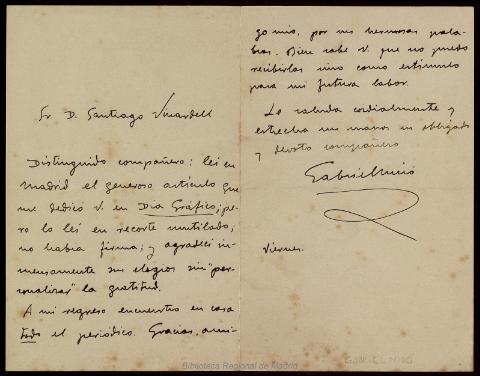 Sr. D. Santiago Vinardell
Distinguido compañero: leí en
Madrid el generoso artículo que
me dedicó V. en Día Gráfico; pe-
ro lo leí en recorte mutilado;
no había firma; y agradecí in-
mensamente su elogio sin "per-
sonalizar" la gratitud.
A mi regreso encuentro en casa
todo el periódico. Gracias, ami-
go mío, por sus hermosas pala-
bras. Bien sabe V. que no puedo
recibirlas sino como estímulo
para mi futura labor.
Le saluda cordialmente y
estrecha sus manos su obligado
y devoto compañero
Gabriel Miró
Viernes.
GABRIEL MIRÓ
Biblioteca Regional de Madrid